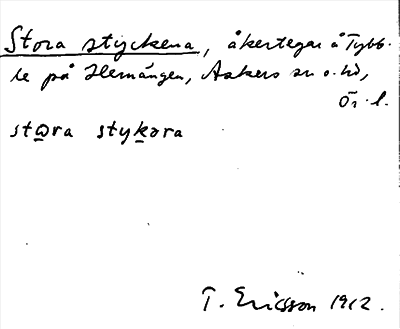 Stora styckena, åkertegar å Tybb-
le på Hemängen, Askers sn o. hd,
Ör. l.
stωra styk̲əra
T. Ericsson 1912.